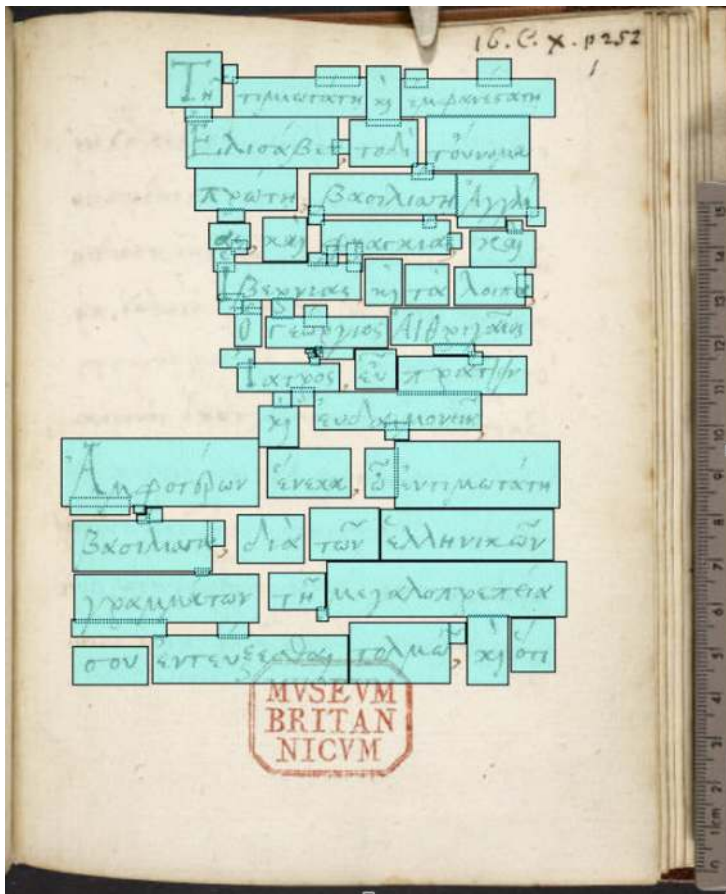 16. C. X. p 252
1
Τῇ τιμιωτάτῃ κὶ ἐμφανεστάτῃ
Ἐλισάβετ, τοδὶ τοὔνομα
πρώτῃ, βασιλίσσῃ Ἀγγλί
ας, καὶ Φραγκίας, καὶ
Ἰβερνίας κὶ τὰ λοιπά,
Ὁ Γεώργιος Αἰθριγαῖος
Ἰατρὸς, εὖ πράττειν
κὶ εὐδαιμονεῖν,
Ἀμφοτέρων ἕνεκα, ὦ ἐντιμωτάτη
βασίλισσα, διὰ τῶν ἑλληνικῶν
γραμμάτων τῇ μεγαλοπρεπείᾳ
σου ἐντεύξεσθαι τολμῶ, κὶ ὅτι
MVSEVM
BRITAN
NICVM